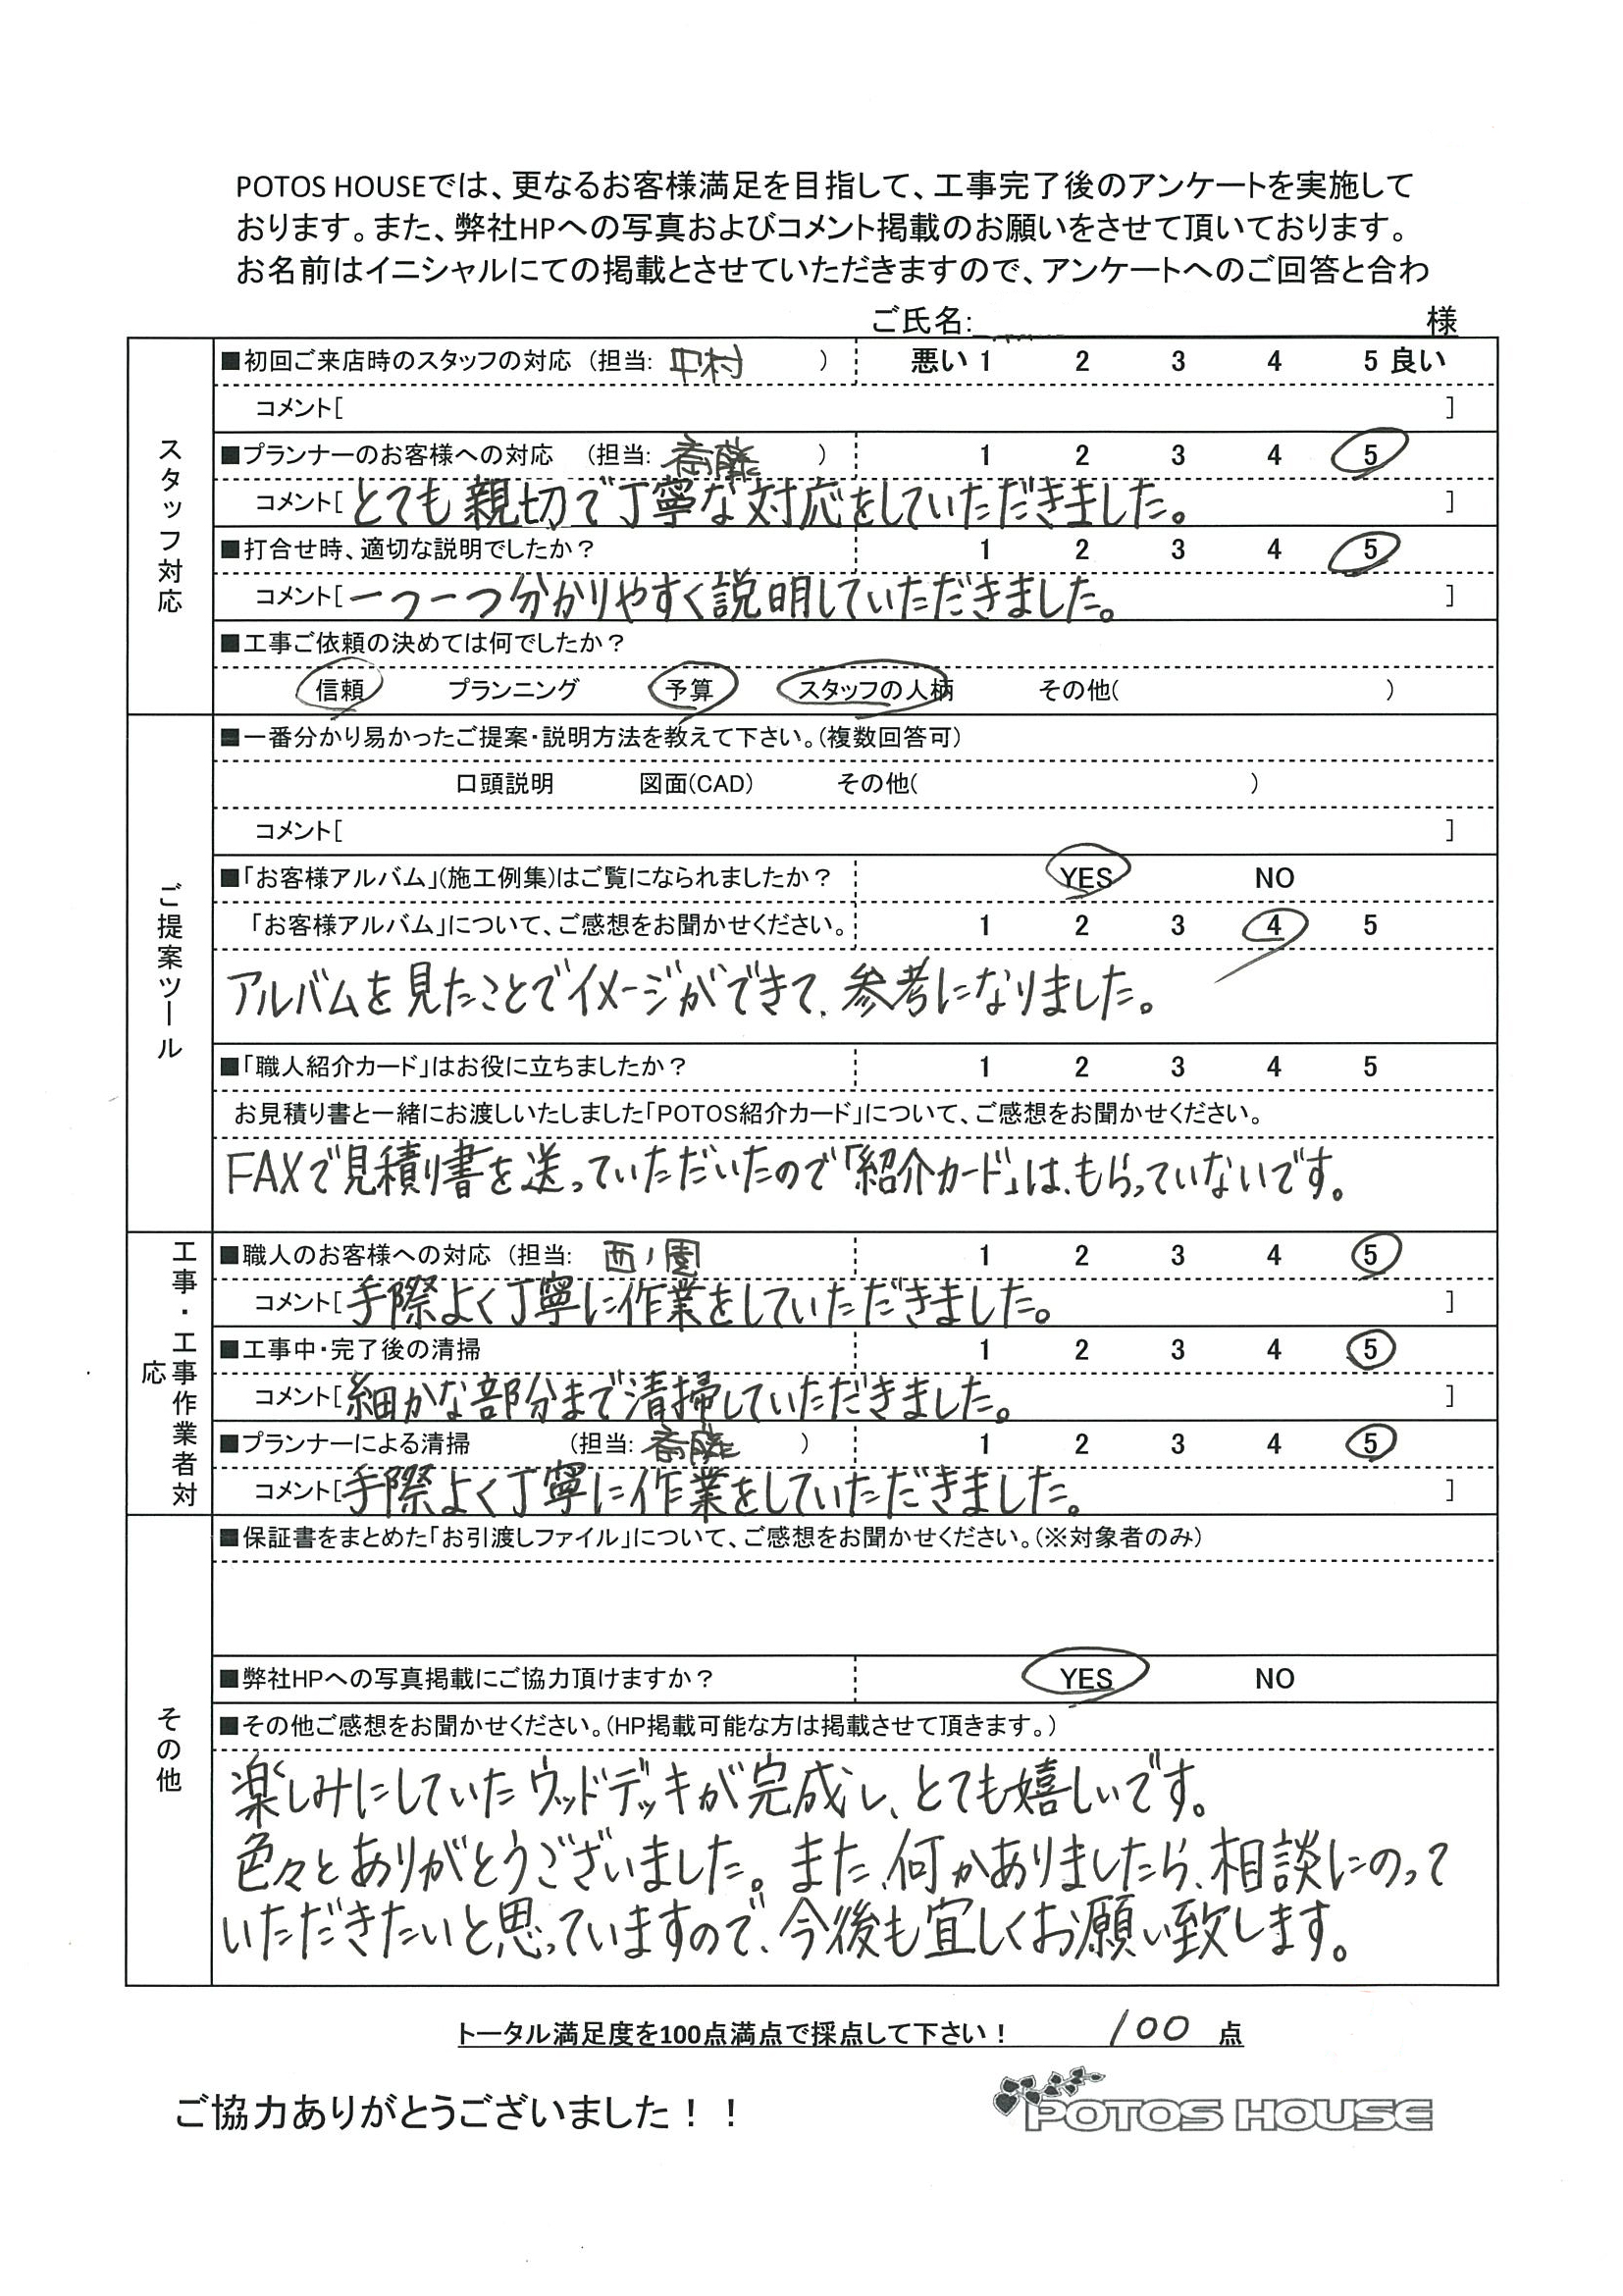 POTOS HOUSEでは、更なるお客様満足を目指して、工事完了後のアンケートを実施して
おります。また、弊社HPへの写真およびコメント掲載のお願いをさせて頂いております。
お名前はイニシャルにての掲載とさせていただきますので、アンケートへのご回答と合わ
ご氏名: 様
スタッフ対応
■初回ご来店時のスタッフの対応 (担当: 中村 ) 悪い 1 2 3 4 5 良い
コメント[ ]
■プランナーのお客様への対応 (担当: 斎藤 ) 1 2 3 4 5
コメント[とても親切で丁寧な対応をしていただきました。 ]
■打合せ時、適切な説明でしたか? 1 2 3 4 5
コメント[一つ一つ分かりやすく説明していただきました。 ]
■工事ご依頼の決めては何でしたか?
信頼 プランニング 予算 スタッフの人柄 その他( )
ご提案ツール
■一番分かり易かったご提案・説明方法を教えて下さい。(複数回答可)
口頭説明 図面(CAD) その他( )
コメント[ ]
■「お客様アルバム」(施工例集)はご覧になられましたか? YES NO
「お客様アルバム」について、ご感想をお聞かせください。 1 2 3 4 5
アルバムを見たことでイメージができて、参考になりました。
■「職人紹介カード」はお役に立ちましたか? 1 2 3 4 5
お見積り書と一緒にお渡しいたしました「POTOS紹介カード」について、ご感想をお聞かせください。
FAXで見積り書を送っていただいたので「紹介カード」は、もらっていないです。
工事・工事作業者対応
■職人のお客様への対応 (担当: 西ノ園 1 2 3 4 5
コメント[手際よく丁寧に作業をしていただきました。 ]
■工事中・完了後の清掃 1 2 3 4 5
コメント[細かな部分まで清掃していただきました。 ]
■プランナーによる清掃 (担当: 斎藤 ) 1 2 3 4 5
コメント[手際よく丁寧に作業をしていただきました。 ]
その他
■保証書をまとめた「お引渡しファイル」について、ご感想をお聞かせください。(※対象者のみ)
■弊社HPへの写真掲載にご協力頂けますか? YES NO
■その他ご感想をお聞かせください。(HP掲載可能な方は掲載させて頂きます。)
楽しみにしていたウッドデッキが完成し、とても嬉しいです。
色々とありがとうございました。また、何かありましたら、相談にのって
いただきたいと思っていますので、今後も宜しくお願い致します。
トータル満足度を100点満点で採点して下さい! 100 点
ご協力ありがとうございました!!
POTOS HOUSE